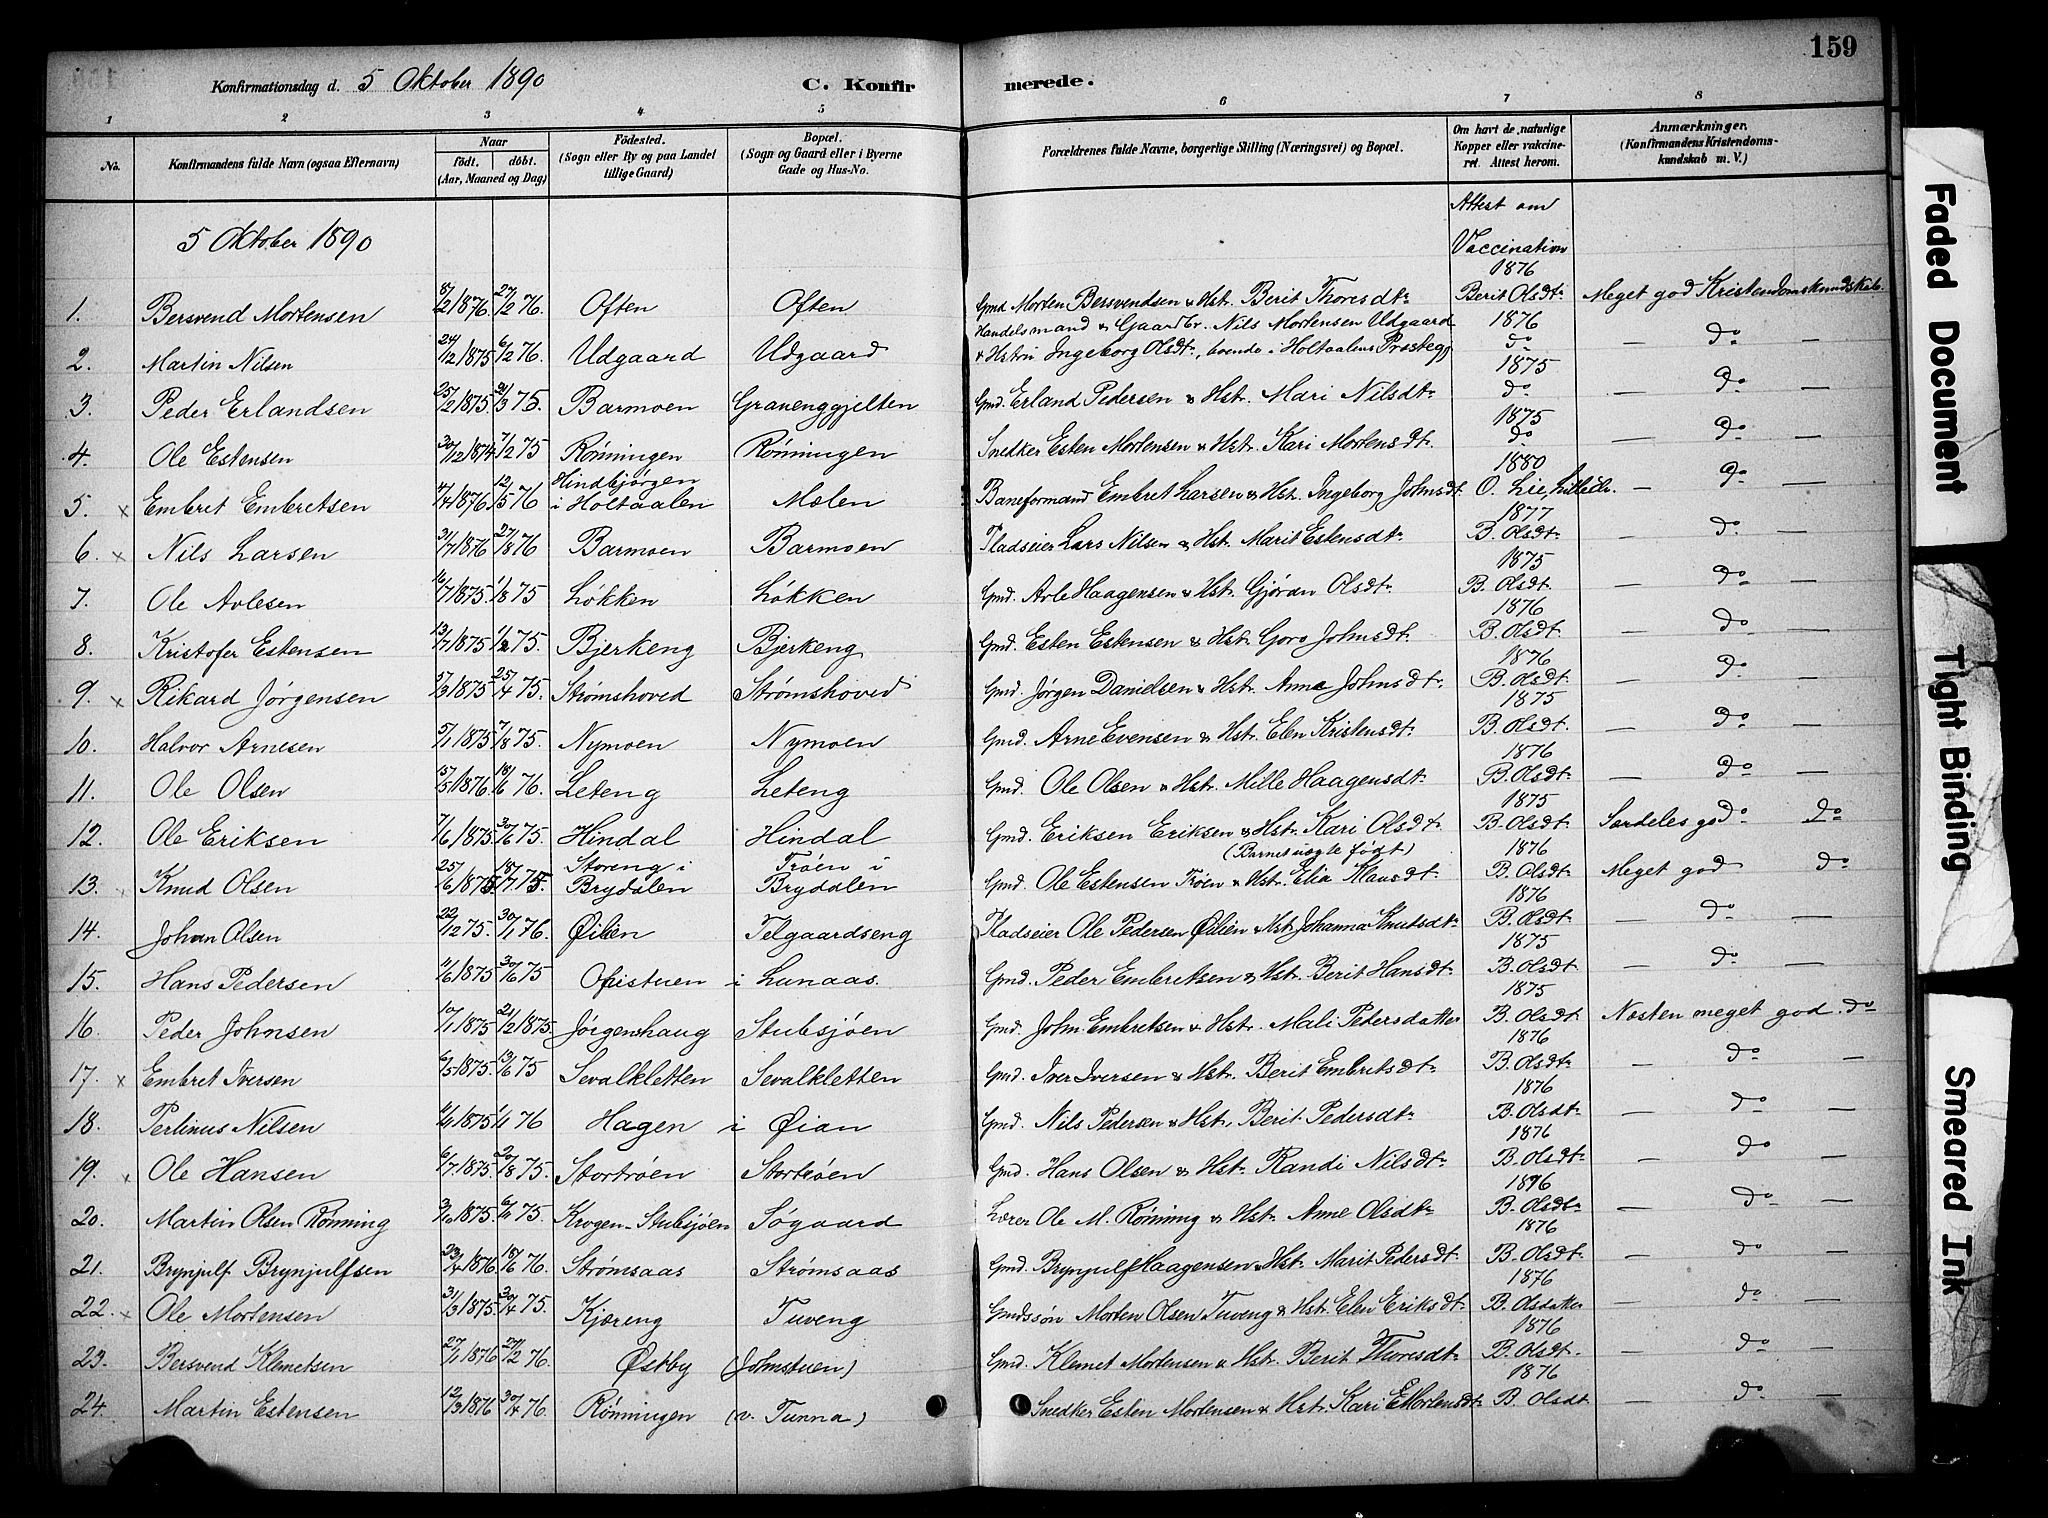 159
Konfirmationsdag d. 5 Oktober 1890 C. Konfirmerede.
1 2 3 4 5 6 7 8
No. Konfirmandens fulde Navn (ogsaa Efternavn) Naar født, døbt. (Aar, Maaned og Dag) Födested. (Sogn eller By og paa Landet tillige Gaard) Bopæl. (Sogn og Gaard eller i Byerne Gade og Hus-No. Forældrenes fulde Navne, borgerlige Stilling (Næringsvei) og Bopæl. Om havt de naturlige Kopper eller vakcineret. Attest herom. Anmærkninger. (Konfirmandens Kristendomskundskab m. V.)
5 Oktober 1890 Attest om Vaccination
1. Bersvend Mortensen 8/2 1876. 27/2 76. Often Often Gmd Morten Bersvendsen & Hst. Berit Thoresdtr 1876 Berit Olsdtr Meget god Kristendomskundskab
2. Martin Nilsen 24/12 1875 6/2 76. Udgaard Udgaard Handelsmand & Gaardbr. Nils Mortensen Udgaard & Hstru Ingeborg Olsdtr, boende i Holtaalens Prestegj 1876 do — do —
3. Peder Erlandsen 25/2 1875. 21/3 75. Barmoen Gravenggjelten Gmd. Erland Pedersen & Hst. Mari Nilsdtr 1875 do — do —
4. Ole Estensen 30/12 1874 7/2 75 Rønningen Rønningen Snedker Esten Mortensen & Hst. Kari Mortensdtr. 1875 do — do —
5. x Embret Embretsen 4/4 1876. 12/5 76 Hindbjørgen i Holtaalen Mælen Baneformand Embret Larsen & Hst. Ingeborg Johnsdt. 1880 O. Lie, — do —
6. x Nils Larsen 31/7 1876 27/8 76 Barmoen Barmoen Pladseier Lars Nilsen & Hst. Marit Estensdtr 1877 B. Olsdtr — do —
7. Ole Avlesen 16/7 1875. 1/8 75 Løkken Løkken Gmd. Avle Haagensen & Hst. Gjøran Olsdtr 1875 B. Olsdtr. — do —
8. Kristofer Estensen 13/7 1875. Bjerkeng Bjerkeng Gmd. Esten Estensen & Hst. Goro Johnsdt. 1876 B. Olsdt. — do —
9. x Rikard Jørgensen 17/3 1875 25/4 75. Strømshoved Strømshoved Gmd. Jørgen Danielsen & Hst. Anne Johnsdtr 1876 B. Olsdtr — do —
10. Halvor Arnesen 5/1 1875. Nymoen Nymoen Gmd. Arne Evensen & Hst. Elen Kristensdtr 1875 B. Olsdtr. — do —
11. Ole Olsen 15/5 1876. 18/6 76. Leteng Leteng Gmd. Ole Olsen & Hst. Mille Haagensdt. 1876 B. Olsdt. — do —
12. Ole Eriksen 7/6 1875. Hindal Hindal Gmd. Eriksen Eriksen & Hst. Kari Olsdtr 1875 B. Olsdtr Særdeles god do
13. Knud Olsen 25/6 1875. 18/7 75. Storeng i Brydalen Trøen i Brydalen Gmd. Ole Estensen Trøen & Hst. Elia Klausdtr (Barnet uægte født) 1876 B. Olsdt. Meget god do
14. Johan Olsen 22/12 75. 30/1 76. Øilien Telgaardseng Pladseier Ole Pedersen Øilien & Hst. Johanna Knutsdtr 1876 B. Olsdtr — do —
15. Hans Pedersen 11/6 1875. 20/6 75 Opistuen i Lunaas. Gmd. Peder Embretsen & Hst. Berit Hansdtr 1875 B. Olsdt. — do —
16. Peder Johnsen 10/1 1875 21/2 1875. Jørgenshaug Stubsjøen Gmd. John Embretsen & Hst. Mali Pedersdatter 1875 B. Olsdt. Næsten meget god. do
17. x Embret Iversen 6/5 1875. 13/6 75 Sevalkletten Sevalkletten Gmd. Iver Iversen & Hst. Berit Embretsdtr 1876 B. Olsdtr — do —
18. Perlinus Nilsen 1875 76 Hagen i Øian Gmd. Nils Pedersen & Hst. Berit Pedersdtr 1876 B. Olsdtr. — do —
19. x Ole Hansen 6/7 1875. 20/8 75. Stortrøen Stortrøen Gmd. Hans Olsen & Hst. Randi Nilsdtr 1876 B. Olsdtr — do
20. Martin Olsen Rønning 1875. 75. Krogen-Stubsjøen Søgaard Lærer Ole M. Rønning & Hst. Anne Olsdtr 1896 B. Olsdtr — do —
21. Brynjulf Brynjulfsen 23/4 1876. 18/6 76. Strømsaas Strømsaas Gmd. Brynjulf Haagensen & Hst. Marit Pedersdt. 1876 B. Olsdt. — do —
22. x Ole Mortensen 31/3 1875. 30/4 75. Kjæreng Tuveng Gmdssøn Morten Olsen Tuveng & Hst. Elen Eriksdt. 1876 B. Olsdatter — do —
23. Bersvend Klemetsen 27/1 1876 27/2 76. Østby (Johnstuen) Gmd. Klemet Mortensen & Hst. Berit Thoresdtr 1876 B. Olsdt. — do —
24. Martin Estensen 12/3 1876 30/4 76. Rønningen (v. Tunna) Snedker Esten Mortensen & Hst. Kari EMortensdt. 1876 B. Olsdt — do —
Faded Document
Tight Binding
Smeared Ink